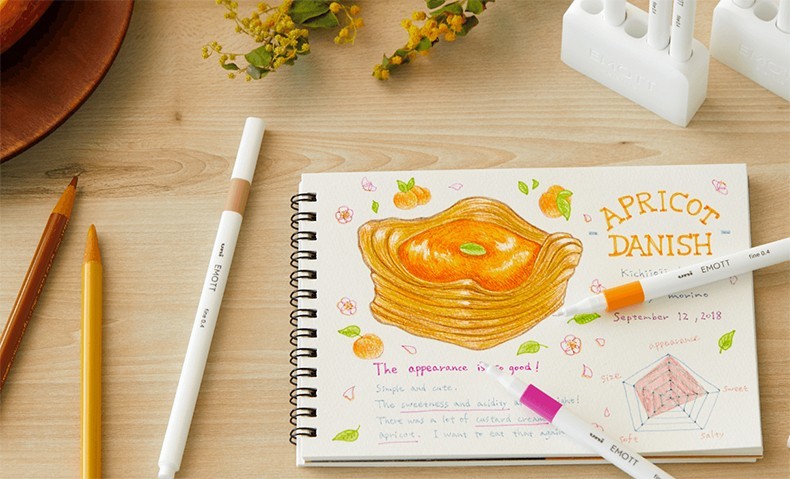 EMOTT
uni EMOTT fine 0.4
APRICOT
DANISH
EMOTT fine 0.4
September 12, 2018
appearance
size
sweet
soft
salty
The appearance is so good!
Simple and cute.
The sweetness and acidity
There was a lot of custard cream
apricot. I want to eat that again
uni EMOTT